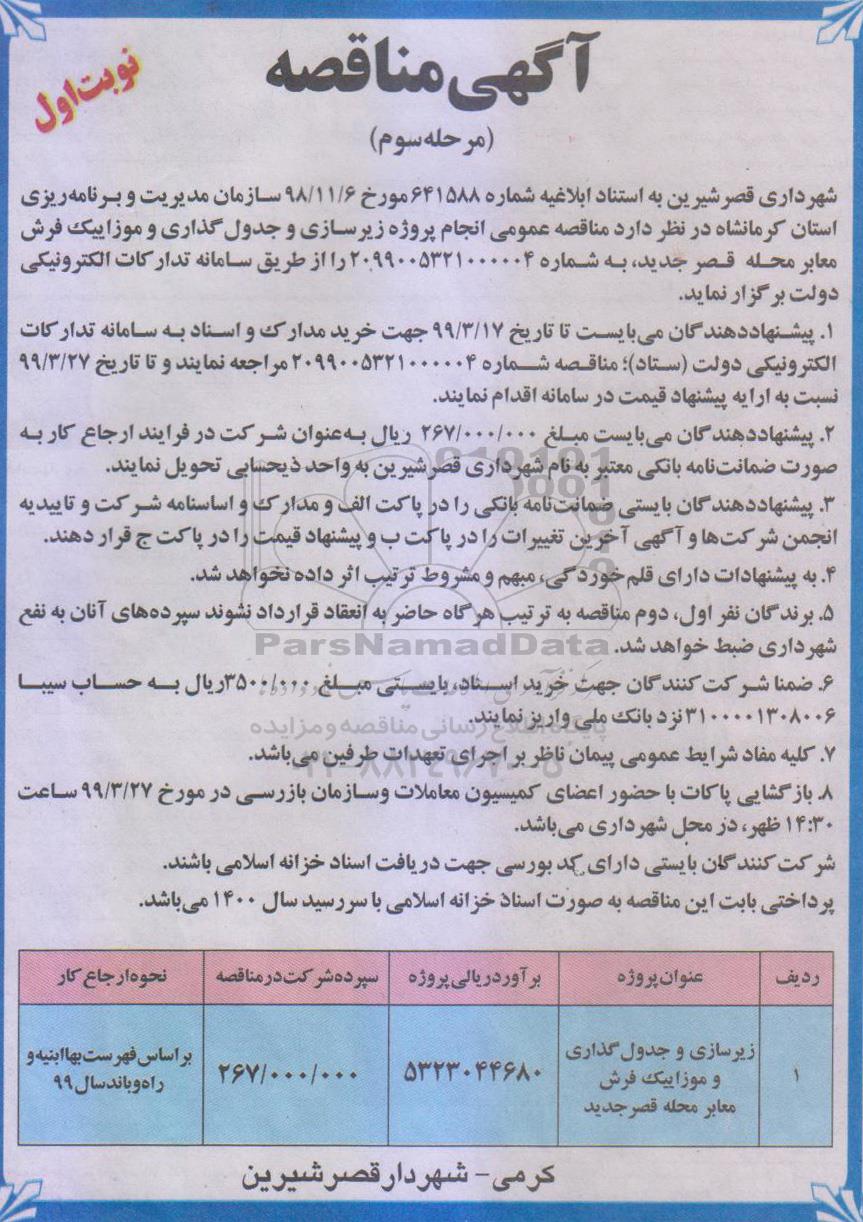 آگهی مناقصه
نوبت اول
(مرحله سوم)
شهرداری قصرشیرین به استناد ابلاغیه شماره ۶۴۱۵۸۸ مورخ ۹۸/۱۱/۶ سازمان مدیریت و برنامه‌ریزی
استان کرمانشاه در نظر دارد مناقصه عمومی انجام پروژه زیرسازی و جدول گذاری و موزاییک فرش
معابر محله قصر جدید، به شماره ۲۰۹۹۰۰۵۳۲۱۰۰۰۰۰۴ را از طریق سامانه تدارکات الکترونیکی
دولت برگزار نماید.
۱. پیشنهاددهندگان می‌بایست تا تاریخ ۹۹/۳/۱۷ جهت خرید مدارک و اسناد به سامانه تدارکات
الکترونیکی دولت (ستاد)؛ مناقصه شماره ۲۰۹۹۰۰۵۳۲۱۰۰۰۰۰۴ مراجعه نمایند و تا تاریخ ۹۹/۳/۲۷
نسبت به ارایه پیشنهاد قیمت در سامانه اقدام نمایند.
۲. پیشنهاددهندگان می‌بایست مبلغ ۲۶۷/۰۰۰/۰۰۰ ریال به‌عنوان شرکت در فرایند ارجاع کار به
صورت ضمانت‌نامه بانکی معتبر به نام شهرداری قصرشیرین به واحد ذیحسابی تحویل نمایند.
۳. پیشنهاددهندگان بایستی ضمانت‌نامه بانکی را در پاکت الف و مدارک و اساسنامه شرکت و تاییدیه
انجمن شرکت‌ها و آگهی آخرین تغییرات را در پاکت ب و پیشنهاد قیمت را در پاکت ج قرار دهند.
۴. به پیشنهادات دارای قلم‌خوردگی، مبهم و مشروط ترتیب اثر داده نخواهد شد.
۵. برندگان نفر اول، دوم مناقصه به ترتیب هرگاه حاضر به انعقاد قرارداد نشوند سپرده‌های آنان به نفع
شهرداری ضبط خواهد شد.
ParsNamadData
۶. ضمنا شرکت کنندگان جهت خرید اسناد، بایستی مبلغ ۳۵۰۰/۰۰۰ ریال به حساب سیبا
۳۱۰۰۰۰۱۳۰۸۰۰۶ نزد بانک ملی واریز نمایند.
پایگاه اطلاع رسانی مناقصه و مزایده
۷. کلیه مفاد شرایط عمومی پیمان ناظر بر اجرای تعهدات طرفین می‌باشد.
۸. بازگشایی پاکات با حضور اعضای کمیسیون معاملات و سازمان بازرسی در مورخ ۹۹/۳/۲۷ ساعت
۱۴:۳۰ ظهر، در محل شهرداری می‌باشد.
شرکت کنندگان بایستی دارای کد بورسی جهت دریافت اسناد خزانه اسلامی باشند.
پرداختی بابت این مناقصه به صورت اسناد خزانه اسلامی با سررسید سال ۱۴۰۰ می‌باشد.
ردیف عنوان پروژه برآورد ریالی پروژه سپرده شرکت در مناقصه نحوه ارجاع کار
۱ زیرسازی و جدول گذاری و موزاییک فرش معابر محله قصر جدید ۵۳۲۳۰۴۴۶۸۰ ۲۶۷/۰۰۰/۰۰۰ بر اساس فهرست بها ابنیه و راه و باند سال ۹۹
کرمی - شهردار قصرشیرین